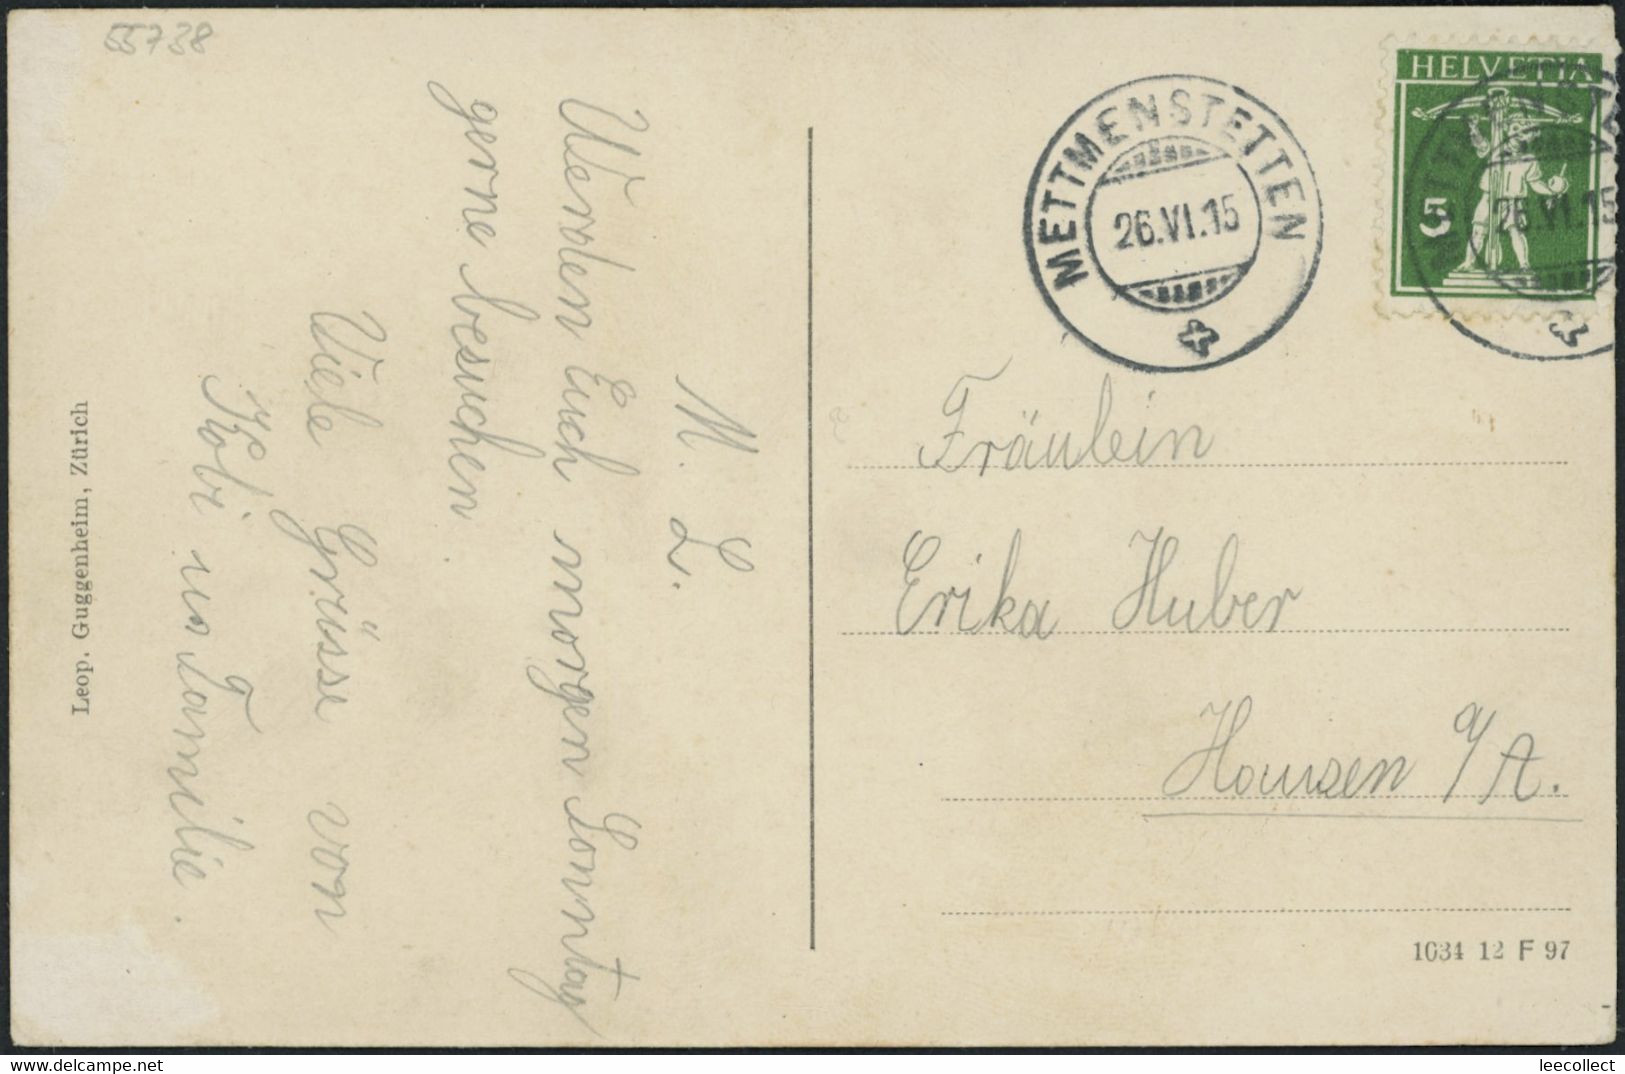 55738
M. L.
Werden Euch morgen Sonntag
gerne besuchen.
Viele Grüsse von
Köbi us Familie.
Leop. Guggenheim, Zürich
METTMENSTETTEN
26.VI.15
HELVETIA
5
METTMENSTETTEN
26.VI.15
Fräulein
Erika Huber
Hausen a/A.
1034 12 F 97
www.delcampe.net
leecollect